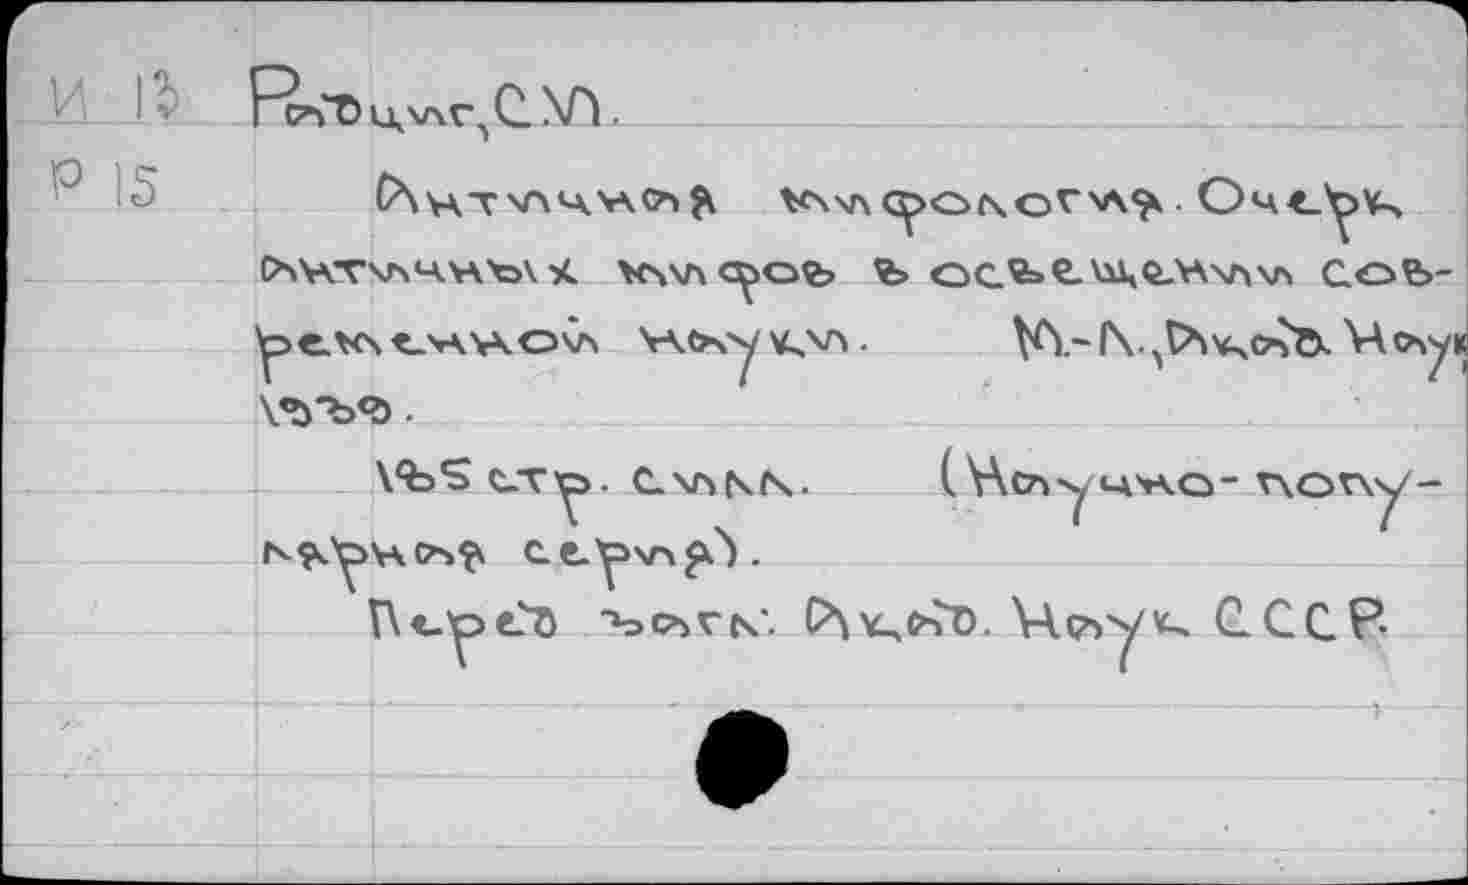 И 13 Радциг, С.И.
Р 15 Античная мифология. Очерк
античных мифов в освещении сов-
ременной науки. М.-Л., Акад. Наук
1939.
135 стр. с илл. (Научно-попу-
лярная серия).
Перед загл: Акад. Наук СССР.